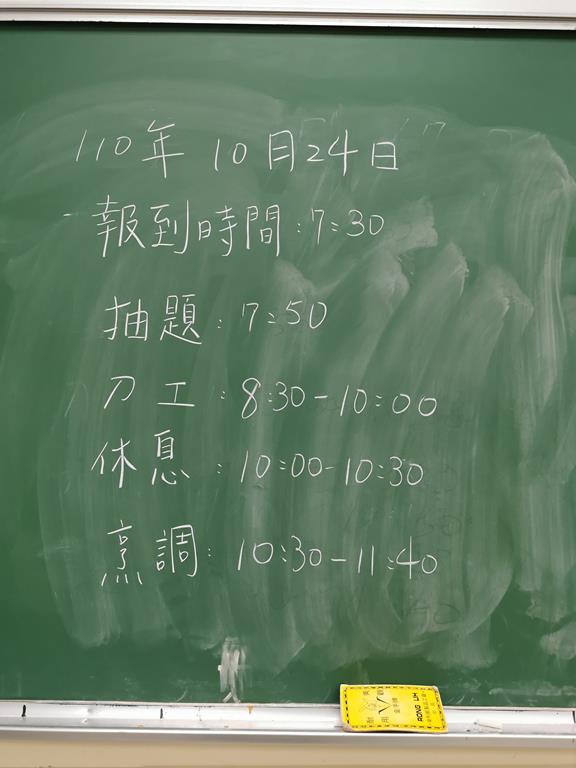 110年 10月24日
報到時間:7:30
抽題:7:50
刀工:8:30-10:00
休息:10:00-10:30
烹調:10:30-11:40
RONG LIH